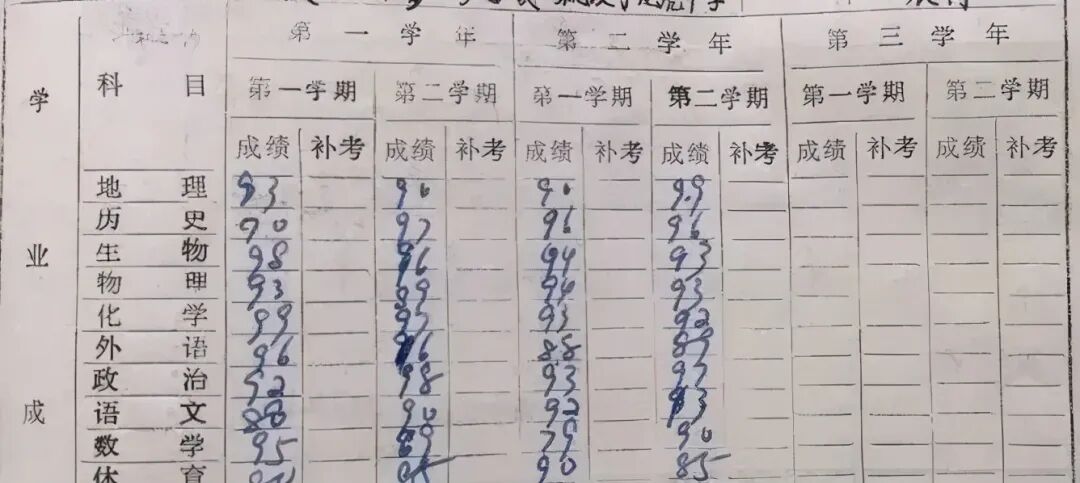 第一学年 第二学年 第三学年
学业成
科目
第一学期 第二学期 第一学期 第二学期 第一学期 第二学期
成绩 补考 成绩 补考 成绩 补考 成绩 补考 成绩 补考 成绩 补考
地理 93 90 90 99
历史 90 97 96 96
生物 98 96 94 93
物理 93 89 94 93
化学 99 97 93 92
外语 96 96 88 89
政治 92 98 93 97
语文 88 90 92 93
数学 95 89 79 90
体育 85 90 85